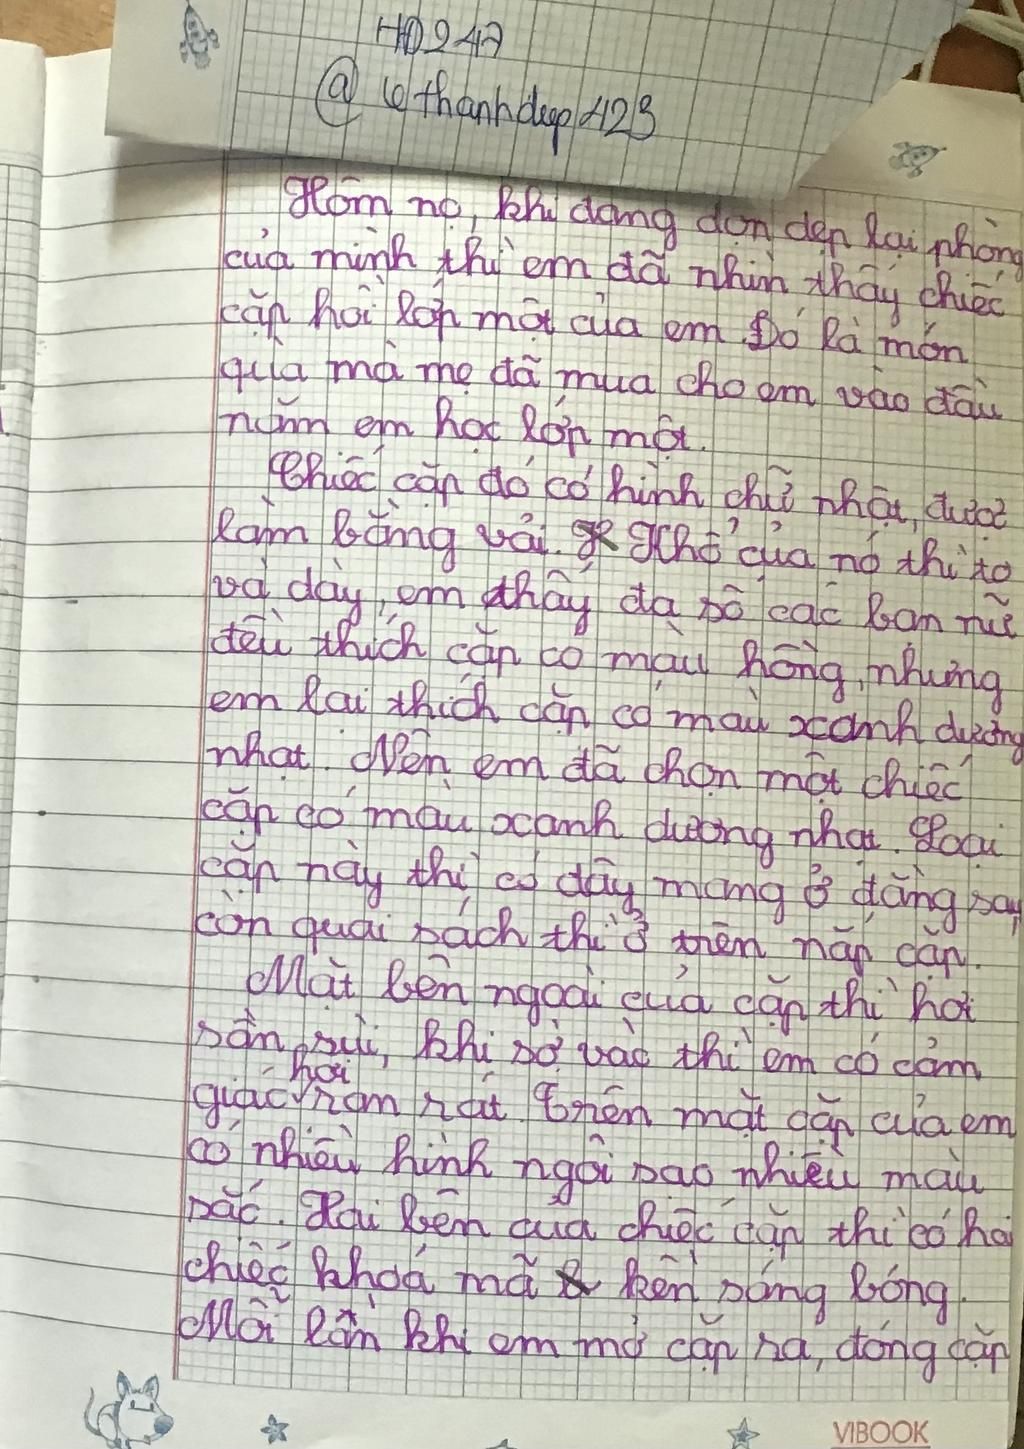 HD247
@lethanhdep423
Hôm nọ, khi đang dọn dẹp lại phòng
của mình thì em đã nhìn thấy chiếc
cặp hồi lớp một của em. Đó là món
quà mà mẹ đã mua cho em vào đầu
năm em học lớp một.
Chiếc cặp đó có hình chữ nhật, được
làm bằng vải. Khổ của nó thì to
và dày, em thấy đa số các bạn nữ
đều thích cặp có màu hồng, nhưng
em lại thích cặp có màu xanh dương
nhạt. Nên em đã chọn một chiếc
cặp có màu xanh dương nhạt. Loại
cặp này thì có dây mang ở đằng sau
còn quai sách thì ở trên nắp cặp.
Mặt bên ngoài của cặp thì hơi
sần sùi, khi sờ vào thì em có cảm
hơi
giác ram rát. Trên mặt cặp của em
có nhiều hình ngôi sao nhiều màu
sắc. Hai bên của chiếc cặp thì có hai
chiếc khoá mã kền sáng bóng.
Mỗi lần khi em mở cặp ra, đóng cặp
VIBOOK